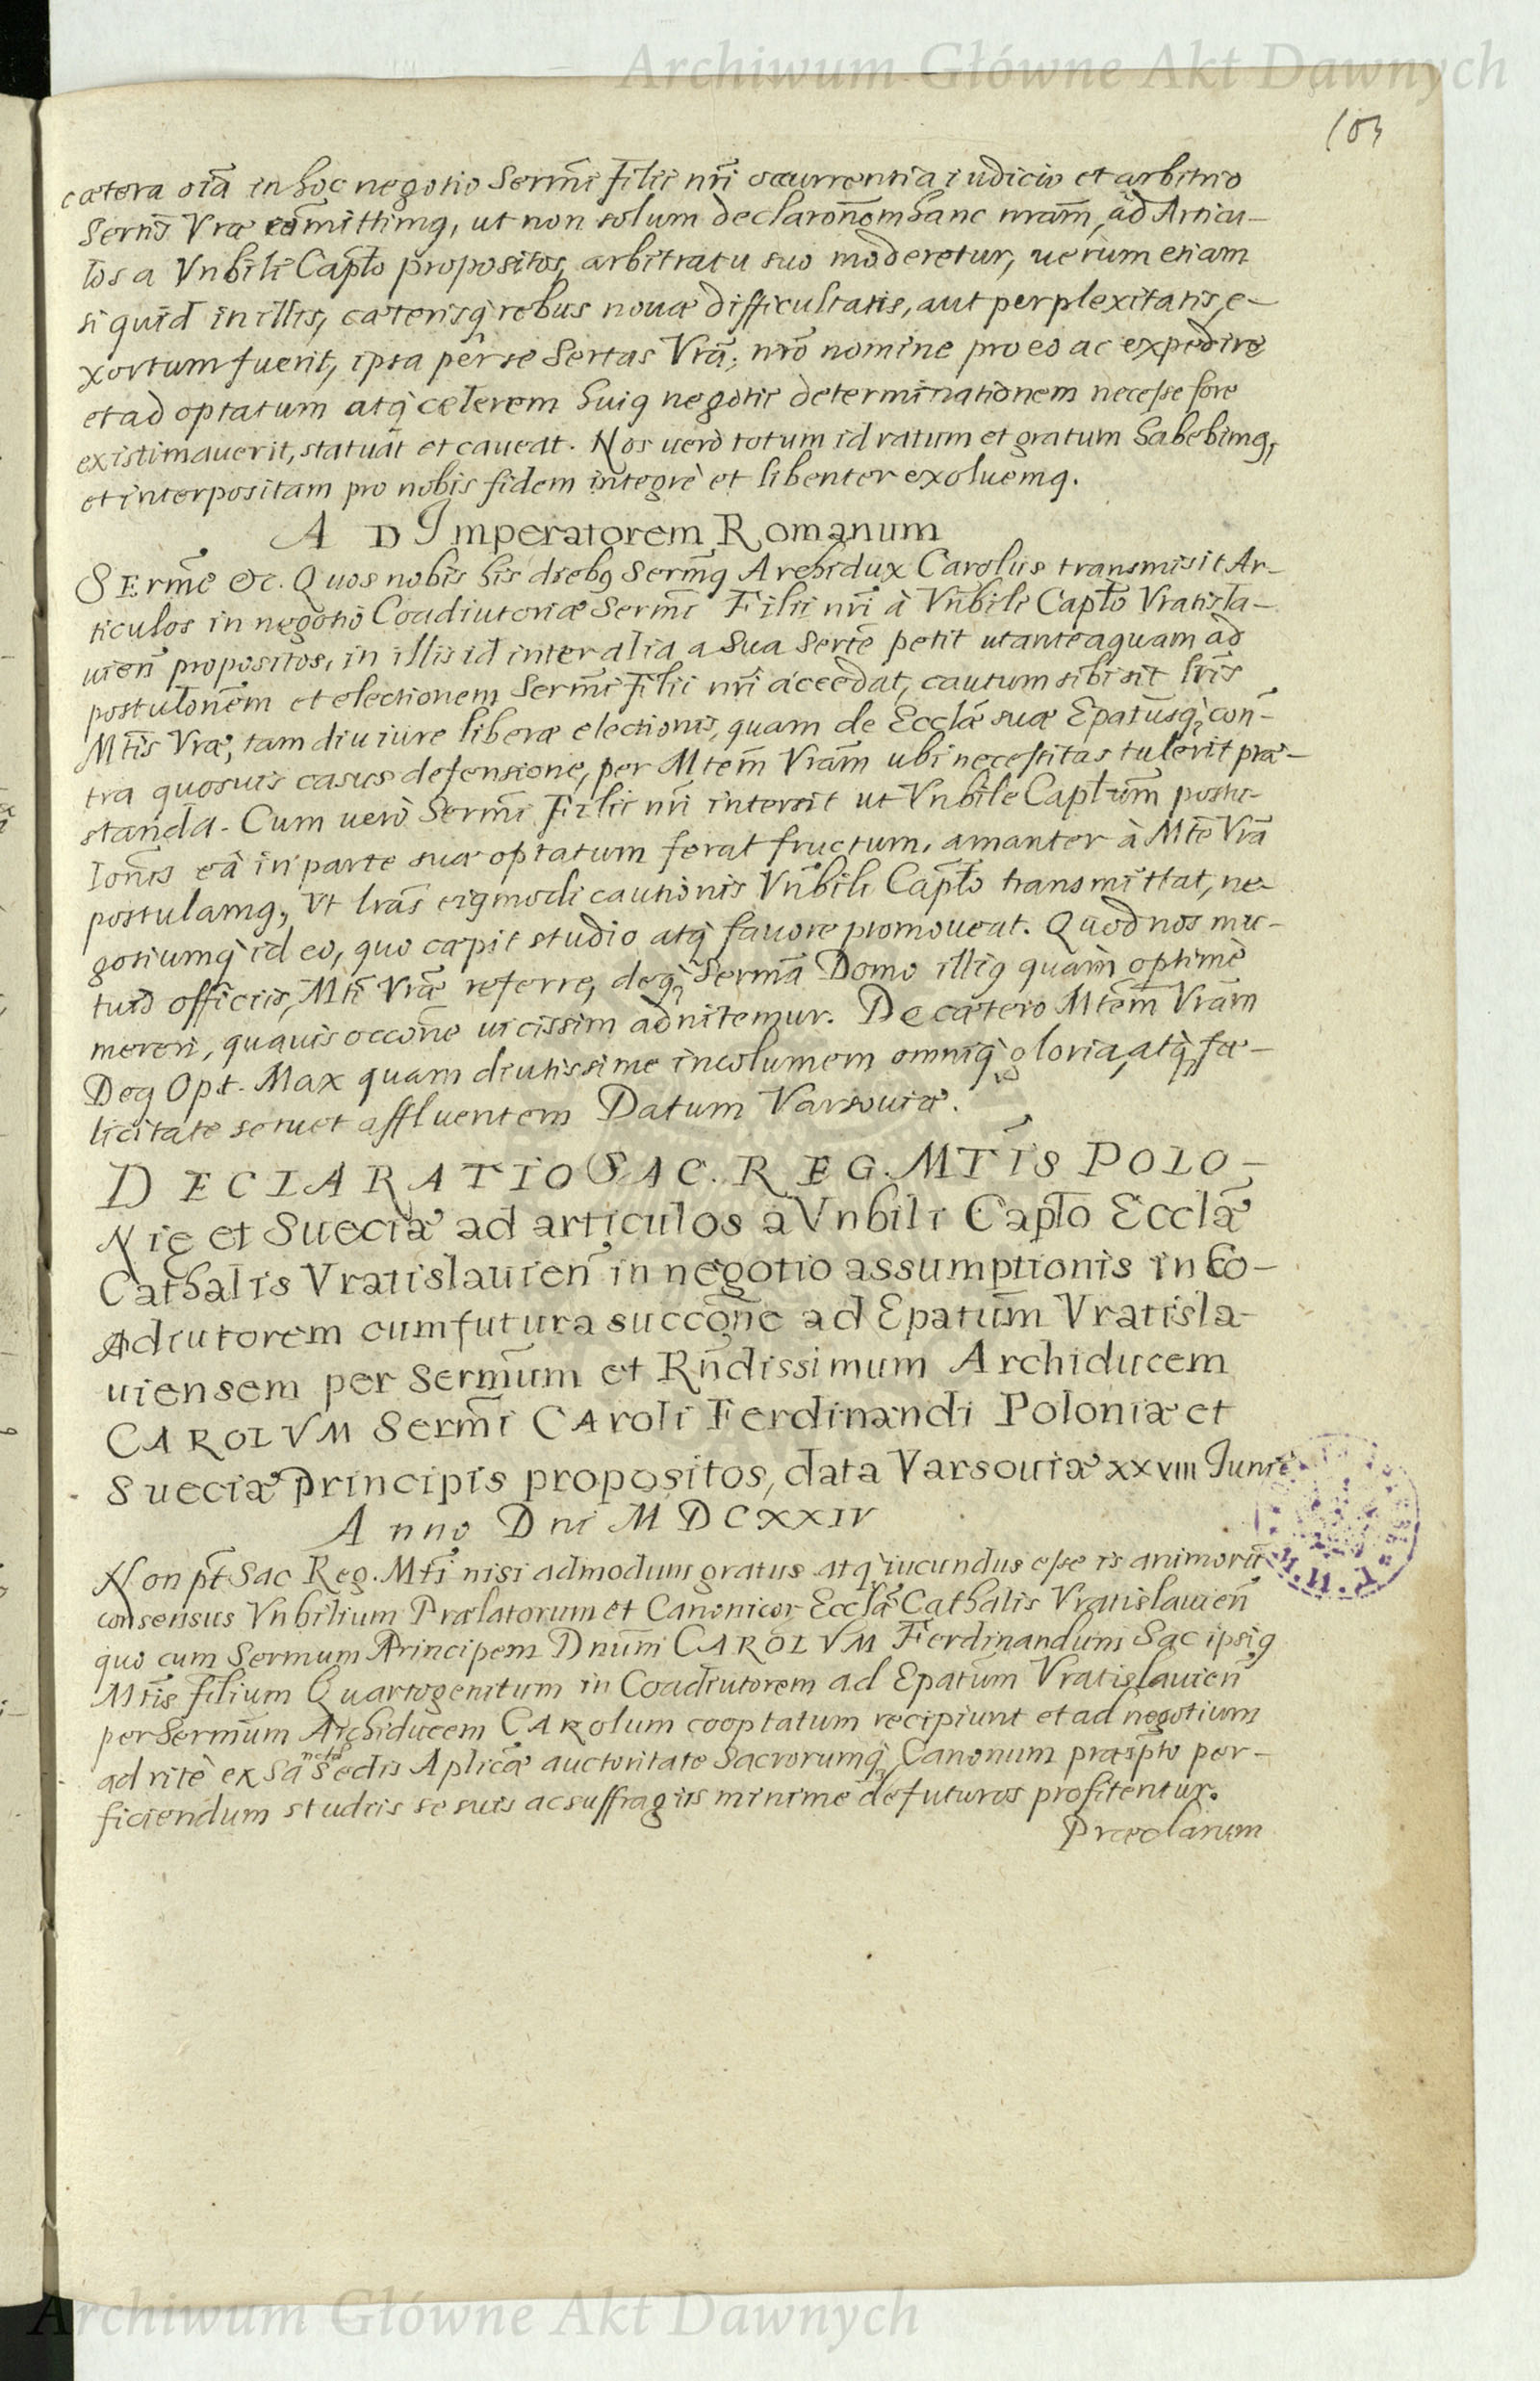 Archiwum Główne Akt Dawnych
103
cætera oi͞a in hoc negotio Serm͞i Filii nr͞i occurrentia iudicio et arbitrio
Sertis͞ Vræ com͞mittimq, ut non solum declaron͞em hanc nram͞, ad Articu-
los a Vnbili Capłto propositos, arbitratu suo moderetur, uerum etiam
si quid in illis, cæterisq̀ rebus nouæ difficultatis, aut perplexitatis, e-
xortum fuerit, ipsa per se Sertas Vrã, nr͞o nomine pro eo ac expedire
et ad optatum atq̀ celerem huiq negotii determinationem necesse fore
existimauerit, statuat et caueat. Nos uerò totum id ratum et gratum habebimq,
et interpositam pro nobis fidem integrè et libenter exoluemq.
AD Imperatorem Romanum
SErme͞ &c. Quos nobis his diebq Serm͞q Archidux Carolus transmisit Ar-
ticulos in negotio Coadiutoriæ Serm͞i Filii nr͞i à Vnbili Capłto Vratisla-
uien͞ propositos, in illis id inter alia a sua Serte͞ petit ut anteaquam ad
postulon͞em et electionem Serm͞i Filii nr͞i accedat, cautum sibi sit lr͞is
Mt͞is Vræ, tam diu iure liberæ electionis, quam de Ecclã suæ Epatusq̀, con͞-
tra quosuis casus defensione, per Mtem͞ Vram͞ ubi necessitas tulerit præ-
standa. Cum uerò Serm͞i Filii nr͞i intersit ut Vnbile Capłtum͞ postu-
lon͞is eã in parte suæ optatum ferat fructum, amanter à Mte͞ Vrã
postulamq, Vt lrãs eiqmodi cautionis Vnbili Capłto transmittat, ne-
gotiumq̀ id eo, quo cæpit studio atq̀ fauore promoueat. Quod nos mu-
tuis officiis, Mt͞i Vræ͞ referre, deq̀ Sermã Domo illiq quàm optimè
mereri, quauis occon͞e uicissim adnitemur. De cætero Mtem͞ Vram͞
Deq Opt. Max quam diutissime incolumem omniq̀ gloria, atq̀ fæ-
licitate seruet affluentem Datum Varsouiæ.
DECLARATIO SAC. REG. MTI͞S POLO-
Nię et Sueciæ ad articulos à Vnbili Capłto Ecclæ͞
Cathalis Vratislauien͞ in negotio assumptionis in Co-
Adiutorem cum futura succon͞e ad Epatum͞ Vratisla-
uiensem per Serm͞um et Rn͞dissimum Archiducem
CAROLVM Serm͞i CAroli Ferdinandi Poloniæ et
Sueciæ principis propositos, data Varsouiæ XXVIII Junii
Anno Dni MDCXXIV
Non pt͞ Sac Reg. Mt͞i nisi admodum gratus atq̀ iucundus esse is animorũ
consensus Vnbilium Prælatorum et Canonicor Ecclæ͞ Cathalis Vratislauien͞
quo cum Sermum Principem Dnum͞ CAROLVM Ferdinandum Sac ipsiq
Mt͞is filium Quartogenitum in Coadiutorem ad Epatum͞ Vratislauien͞
per Serm͞um Archiducem CARolum cooptatum recipiunt et ad negotium
ad ritè ex Sanctæ Sedis Aplicæ͞ auctoritate Sacrorumq̀ Canonum præspt͞o per-
ficiendum studiis se suis ac suffragiis minime defuturos profitentur.
Præclarum
Archiwum Główne Akt Dawnych